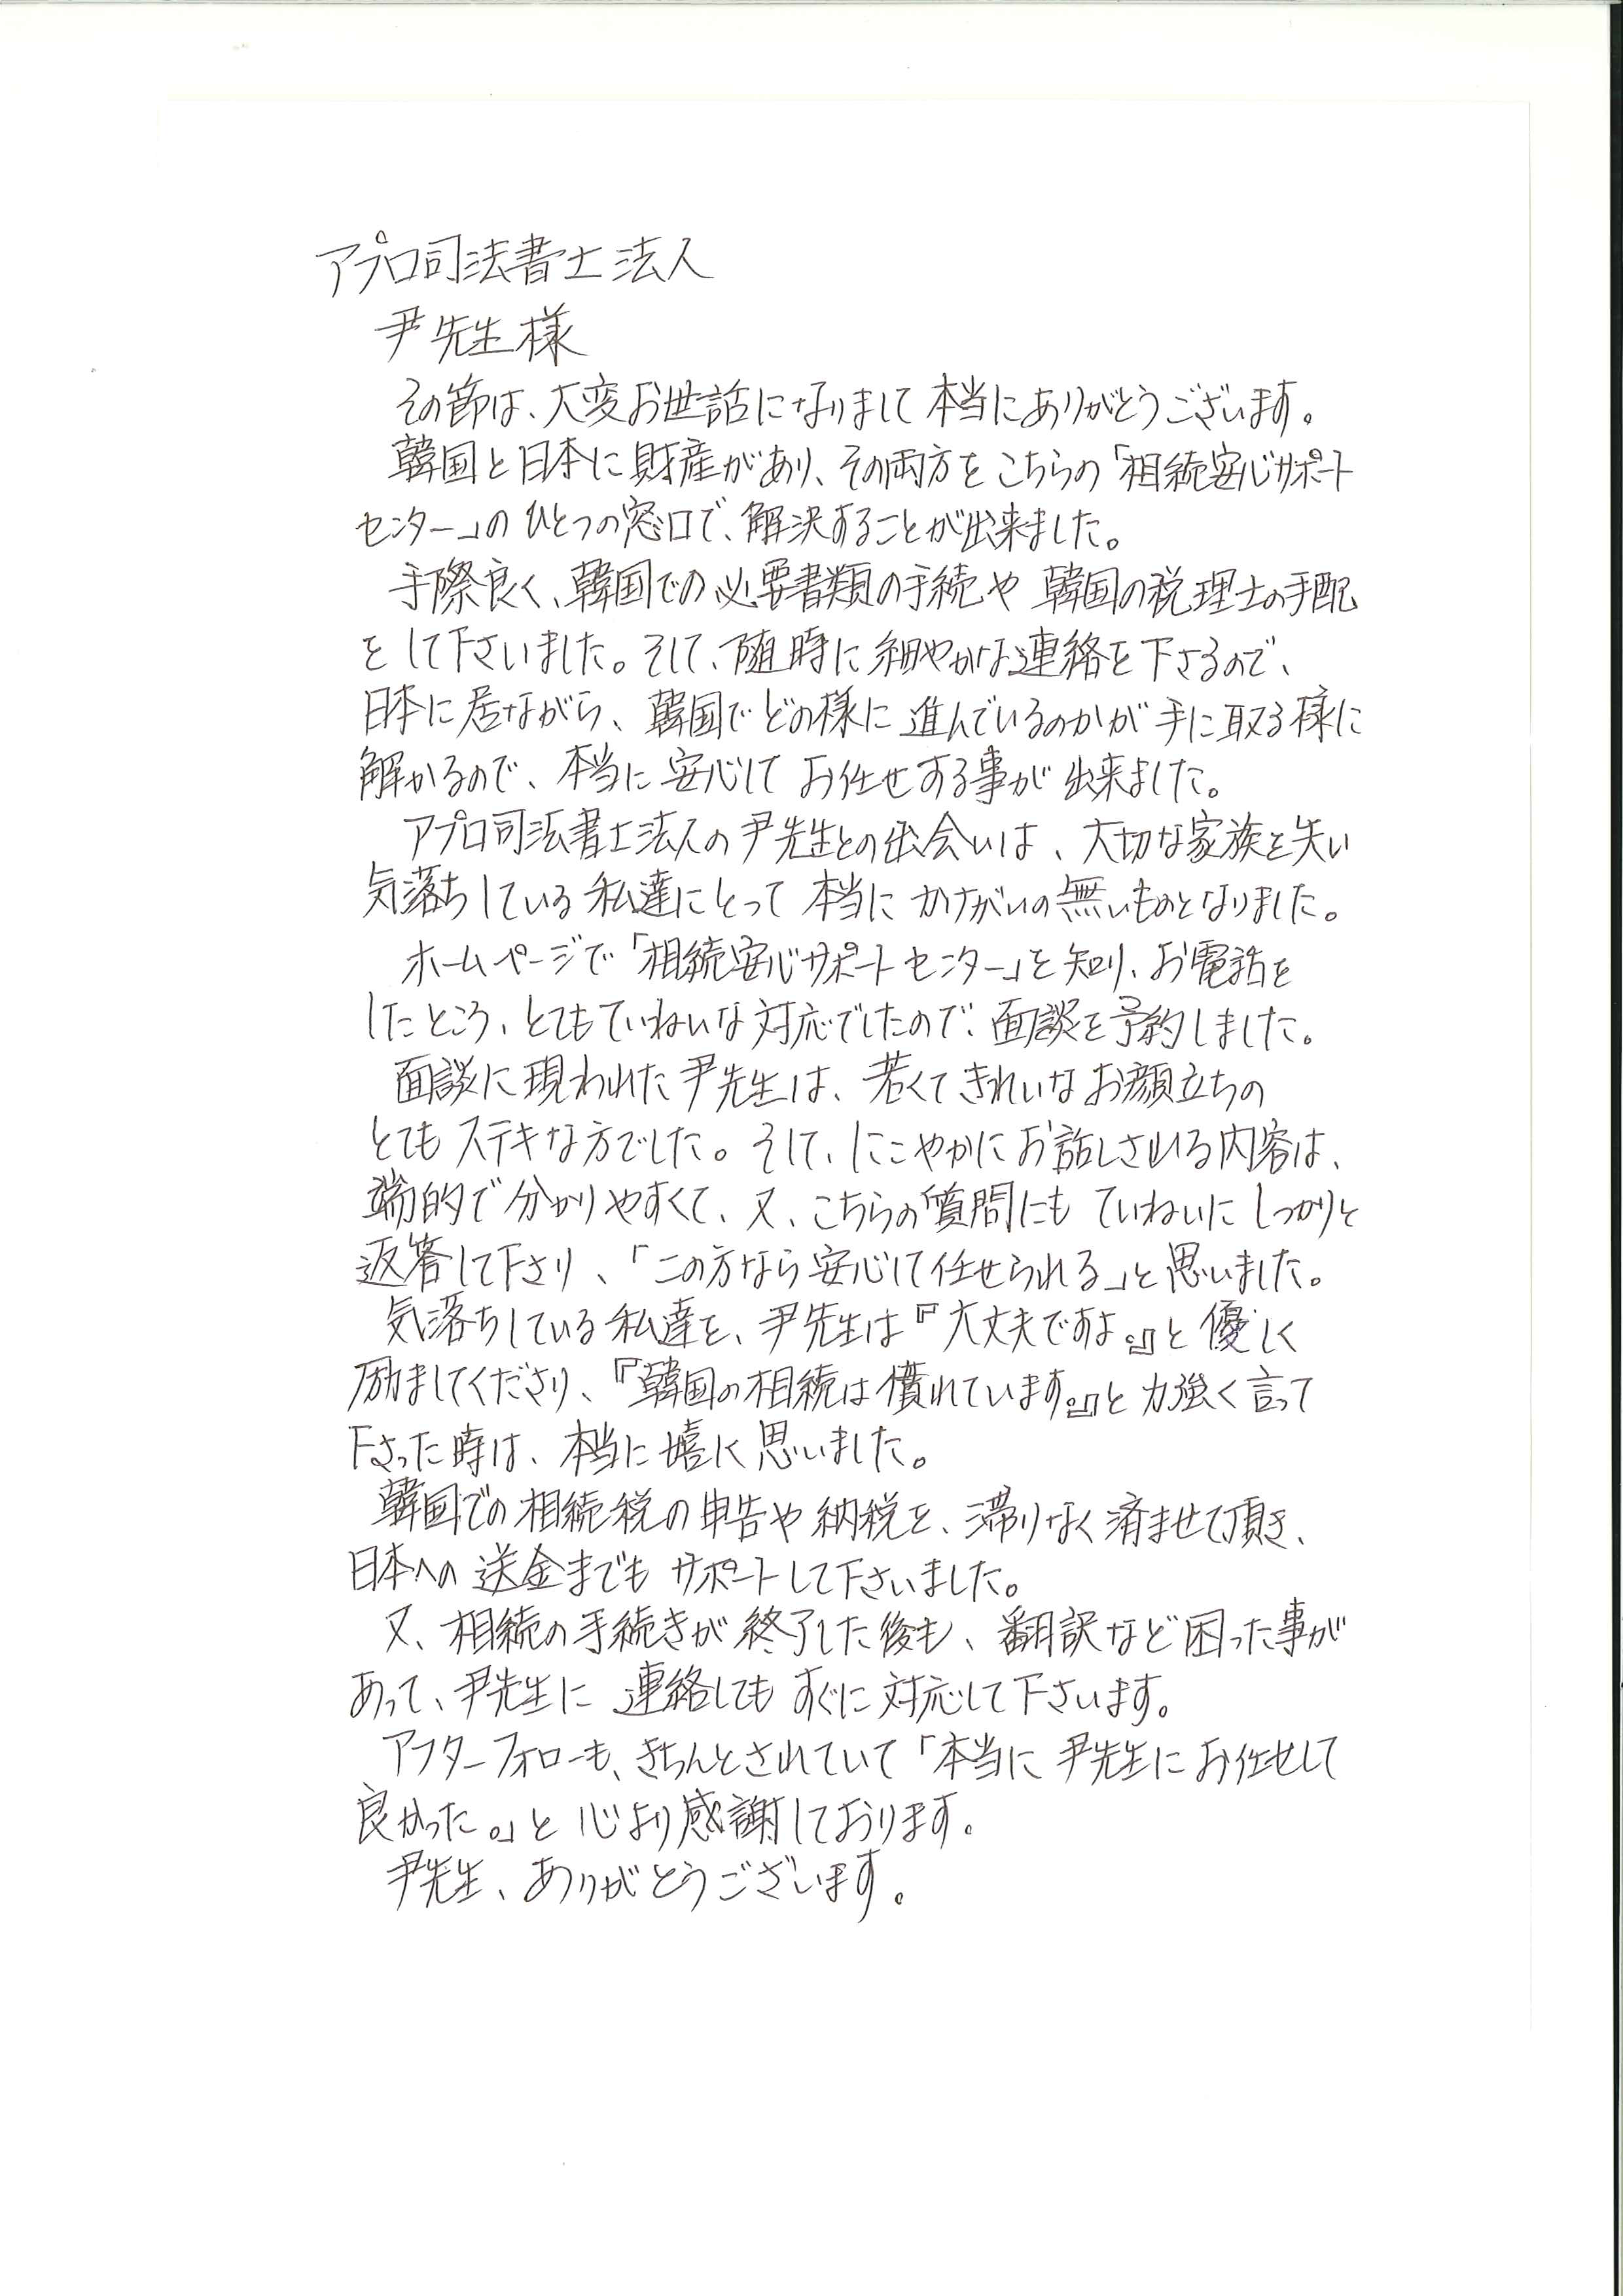 アプロ司法書士法人
尹先生様
その節は、大変お世話になりまして本当にありがとうございます。
韓国と日本に財産があり、その両方をこちらの「相続安心サポート
センター」のひとつの窓口で、解決することが出来ました。
手際良く、韓国での必要書類の手続や韓国の税理士の手配
をして下さいました。そして、随時に細やかな連絡を下さるので、
日本に居ながら、韓国でどの様に進んでいるのかが手に取る様に
解かるので、本当に安心してお任せする事が出来ました。
アプロ司法書士法人の尹先生との出会いは、大切な家族を失い
気落ちしている私達にとって本当にかけがいの無いものとなりました。
ホームページで「相続安心サポートセンター」を知り、お電話を
したところ、とてもていねいな対応でしたので、面談を予約しました。
面談に現われた尹先生は、若くてきれいなお顔立ちの
とてもステキな方でした。そして、にこやかにお話しされる内容は、
端的で分かりやすくて、又、こちらの質問にもていねいにしっかりと
返答して下さり、「この方なら安心して任せられる」と思いました。
気落ちしている私達を、尹先生は『大丈夫ですよ。』と優しく
励ましてくださり、『韓国の相続は慣れています。』と力強く言って
下さった時は、本当に嬉しく思いました。
韓国での相続税の申告や納税を、滞りなく済ませて頂き、
日本への送金までもサポートして下さいました。
又、相続の手続きが終了した後も、翻訳など困った事が
あって、尹先生に連絡してもすぐに対応して下さいます。
アフターフォローも、きちんとされていて「本当に尹先生にお任せして
良かった。」と心より感謝しております。
尹先生、ありがとうございます。